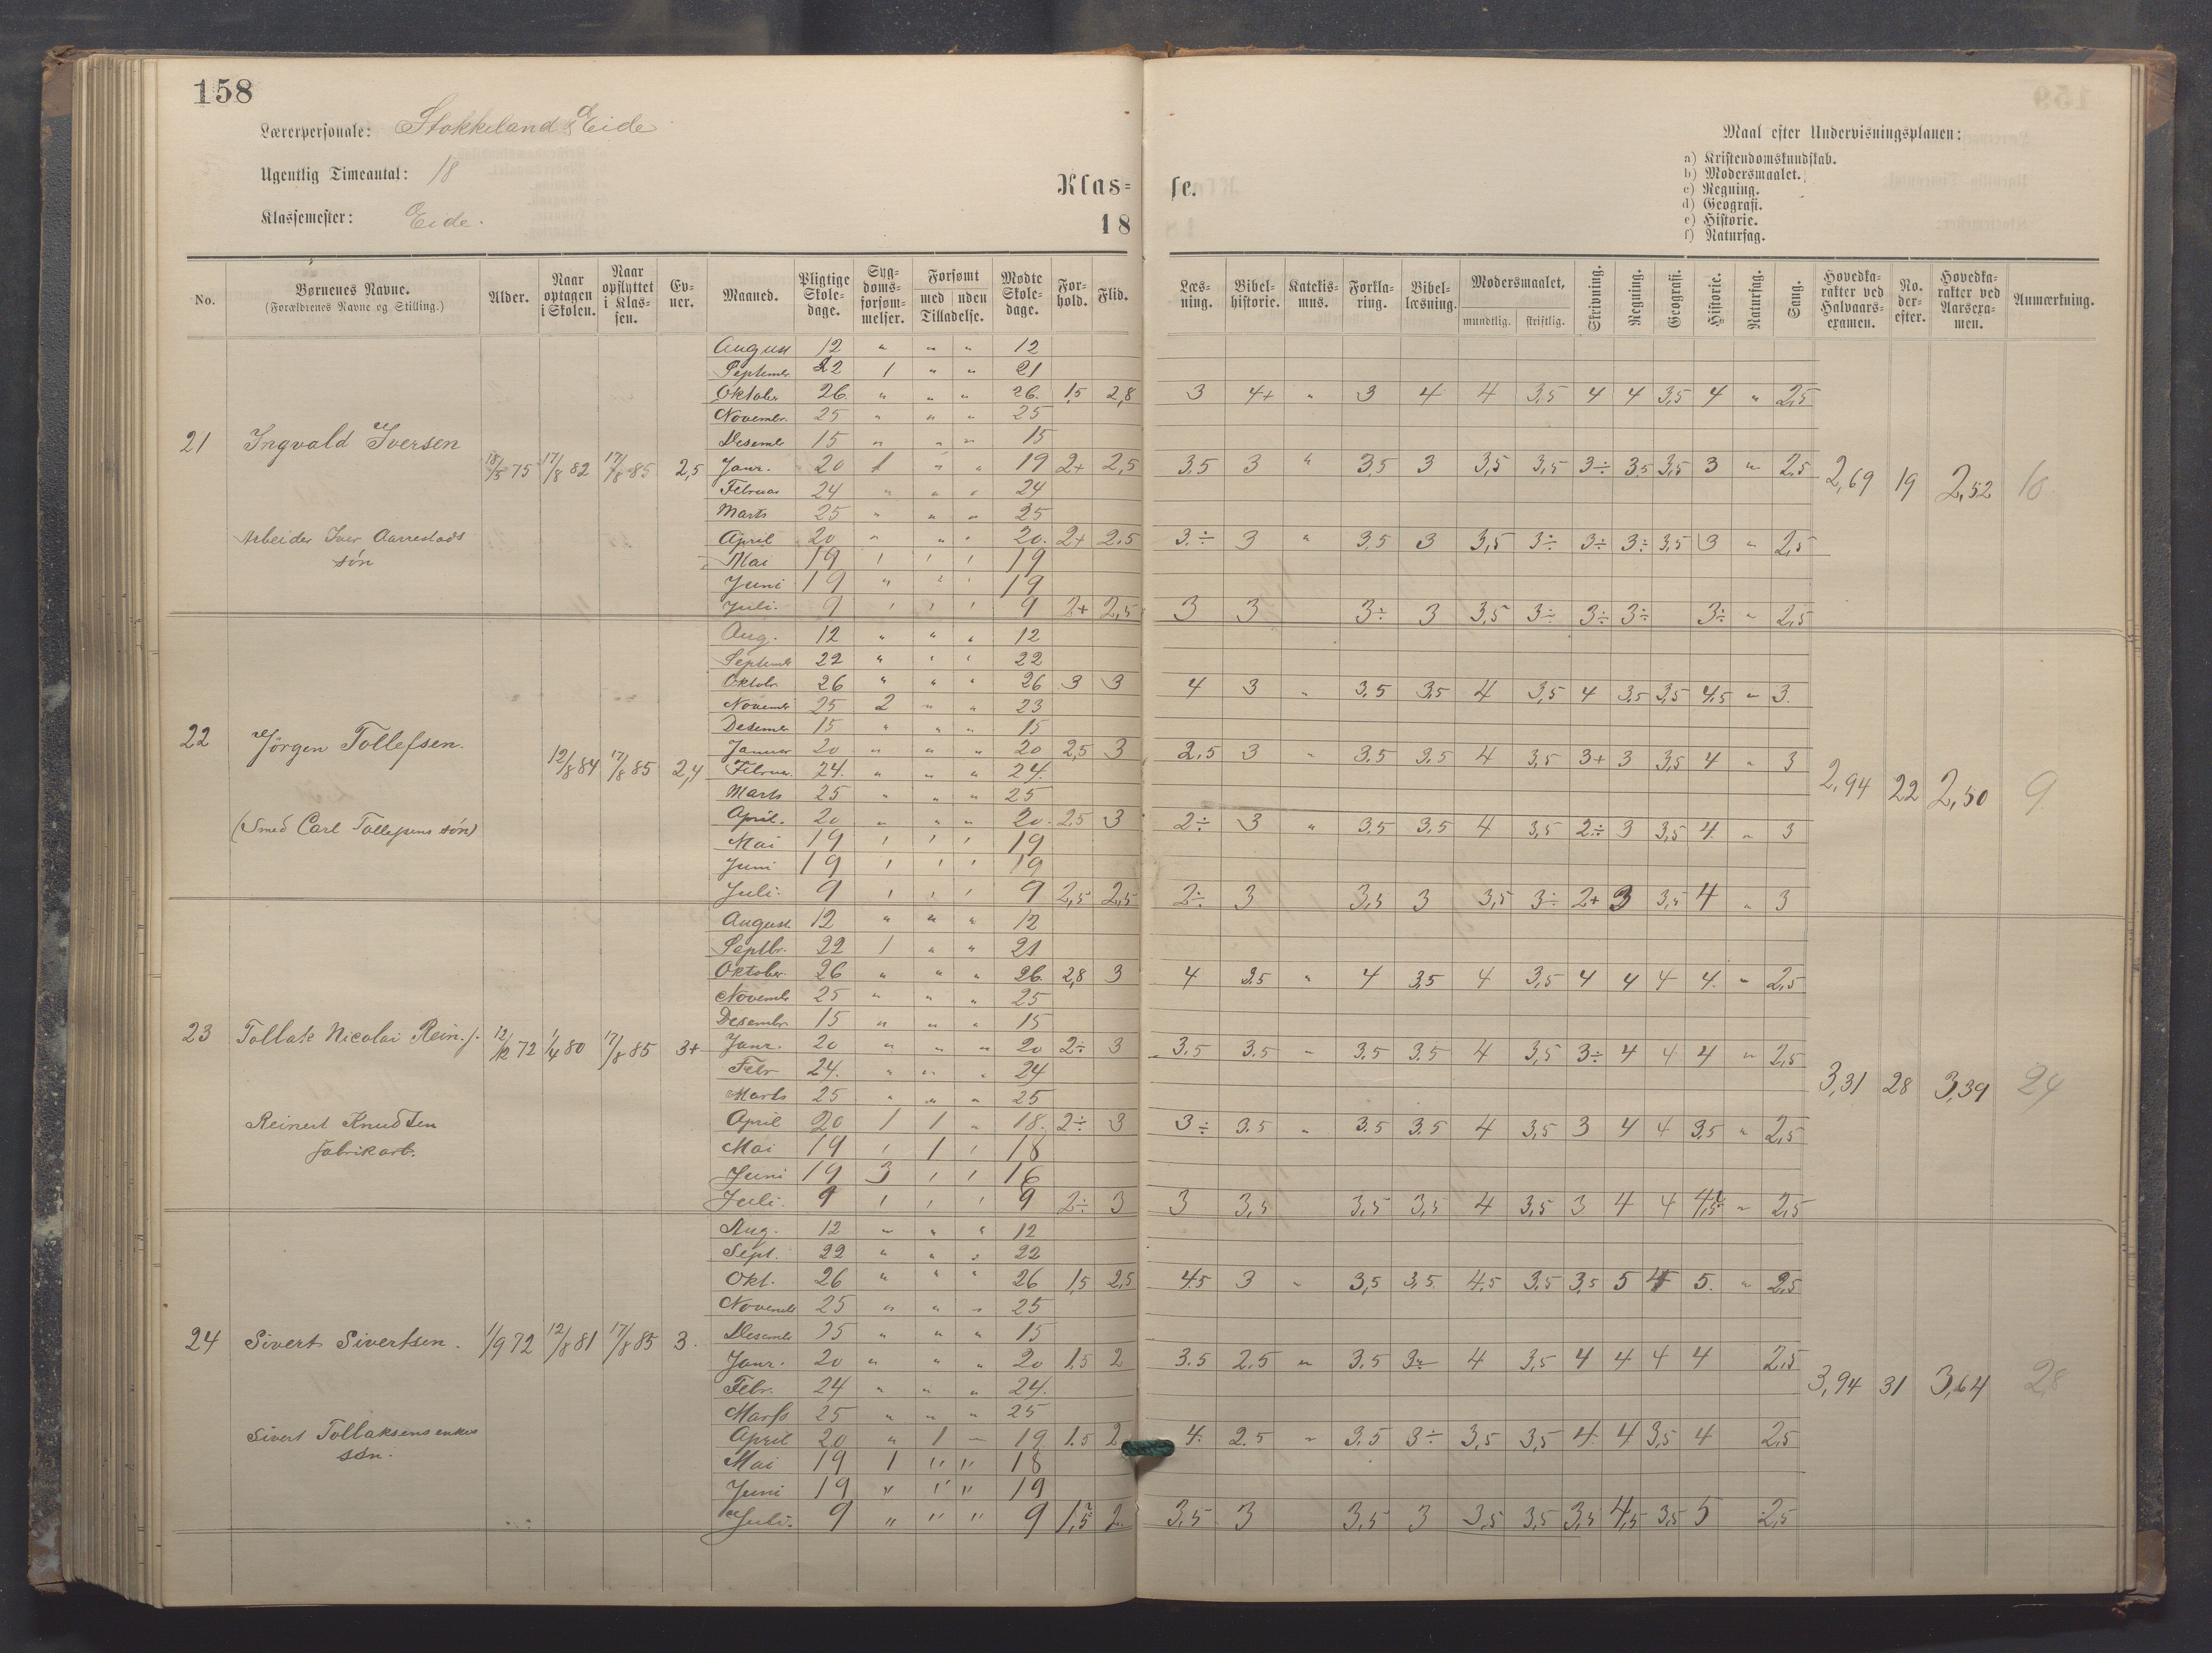 158
Lærerpersonale: Stokkeland & Eide
Ugentlig Timeantal: 18
Klassemester: Eide.
Klas= se.
18
Maal efter Undervisningsplanen:
a) Kristendomskundskab.
b) Modersmaalet.
c) Regning.
d) Geografi.
e) Historie.
f) Naturfag.
No. | Børnenes Navne. (Forældrenes Navne og Stilling.) | Alder. | Naar optagen i Skolen. | Naar opflyttet i Klas- sen. | Ev- ner. | Maaned. | Pligtige Skole- dage. | Syg- doms- forsøm- melser. | Forsømt med uden Tilladelse. | Mødte Skole- dage. | For- hold. | Flid. | Læs- ning. | Bibel- historie. | Katekis- mus. | Forkla- ring. | Bibel- læsning. | Modersmaalet, mundtlig. skriftlig. | Skrivning. | Regning. | Geografi. | Historie. | Naturfag. | Sang. | Hovedka- rakter ved Halvaars- examen. | No. der- efter. | Hovedka- rakter ved Aarsexa- men. | Anmærkning.
August 12 " " " 12
Septembr 22 1 " " 21
Oktober 26. " " " 26. 1,5 2,8 3 4+ " 3 4 4 3,5 4 4 3,5 4 " 2,5
Novembr. 25 " " " 25
21 Ingvald Iversen Desembr 15 " " " 15
18/5 75 17/8 82 17/8 85 2,5 Janr. 20 1 " " 19 2+ 2,5 3.5 3 " 3,5 3 3,5 3,5 3÷ 3.5 3,5 3 " 2,5
Februar 24 " " " 24 2,69 19 2,52 10
Marts 25 " " " 25
Arbeider Iver Aarrestads April 20 " " " 20. 2+ 2.5 3.÷ 3 " 3,5 3 3,5 3÷ 3÷ 3÷ 3,5 3 " 2,5
søn Mai 19 " " " 19
Juni 19 " " " 19
Juli. 9 " " " 9 2+ 2,5 3 3 3÷ 3 3,5 3÷ 3÷ 3÷ 3÷ " 2,5
Aug. 12 " " " 12
Septembr 22 " " " 22
Oktobr. 26 " " " 26 3 3 4 3 " 3.5 3,5 4 3,5 4 3,5 3,5 4,5 " 3.
Novembr 25 2 " " 23
22 Jørgen Tollefsen. Desember 15 " " " 15
Januar 20 " " " 20 2,5 3 2.5 3 " 3.5 3.5 4 3,5 3+ 3 3,5 4 " 3
12/8 84 17/8 85 2,4 Februar. 24. " " " 24. 2,94 22 2,50 9
Marts 25 " " " 25
(Smed Carl Tollefsens søn) April. 20 " " " 20. 2,5 3 2÷ 3 " 3.5 3.5 4 3,5 2÷ 3 3,5 4. " 3
Mai 19 " " " 19
Juni 19 " " " 19
Juli. 9 " " " 9 2,5 2,5 2÷ 3 3,5 3 3,5 3÷ 2+ 3 3,5 4 " 3
August. 12 " " " 12
Septbr. 22 1 " " 21
Oktober. 26 " " " 26. 2,8 3 4 3.5 " 4 3,5 4 3,5 4 4 4 4. " 2,5
Novembr 25 " " " 25
Desembr. 15 " " " 15
23 Tollak Nicolai Rein.s. 12/12 72 1/4 80 17/8 85 3+ Janr. 20 " " " 20 2÷ 3 3.5 3.5 " 3.5 3.5 4 3,5 3÷ 4 4 4 " 2,5
Febr 24. " " " 24 3,31 28 3,39 24
Marts 25 " " " 25
Reinert Knudsen April 20 1 1 " 18. 2÷ 3 3÷ 3.5 " 3.5 3.5 4 3,5 3 4 4 3,5 " 2,5
fabrikarb. Mai 19 " 1 " 18
Juni 19 3 " " 16
Juli. 9 " " " 9 2÷ 3 3 3,5 3,5 3,5 4 3,5 3 4 4 4,5 " 2,5
Aug. 12 " " " 12
Sept. 22 " " " 22
Okt. 26 " " " 26 1,5 2,5 4.5 3 " 3,5 3,5. 4,5 3,5 3,5 5 4 5. " 2,5
Novembr 25 " " " 25
24 Sivert Sivertsen. 1/9 72 12/8 81 17/8 85 3. Desembr 15 " " " 15
Janr. 20 " " " 20 1.5 2 3.5 2.5 " 3.5 3÷ 4 3,5 4 4 4 4 2,5
Febr. 24 " " " 24. 3,94 31 3,64 28
Marts 25 " " " 25
Sivert Tollaksens enkes April 20 " 1 " 19 1.5 2 4. 2.5 " 3.5 3÷ 3,5 3,5 4. 4 3,5 4 2,5
søn. Mai 19 1 " " 18
Juni 19 " " " 19
Juli. 9 " " " 9 1,5 2. 3,5 3 3,5 3 3,5 3,5 3,5 4,5 3,5 5 2,5